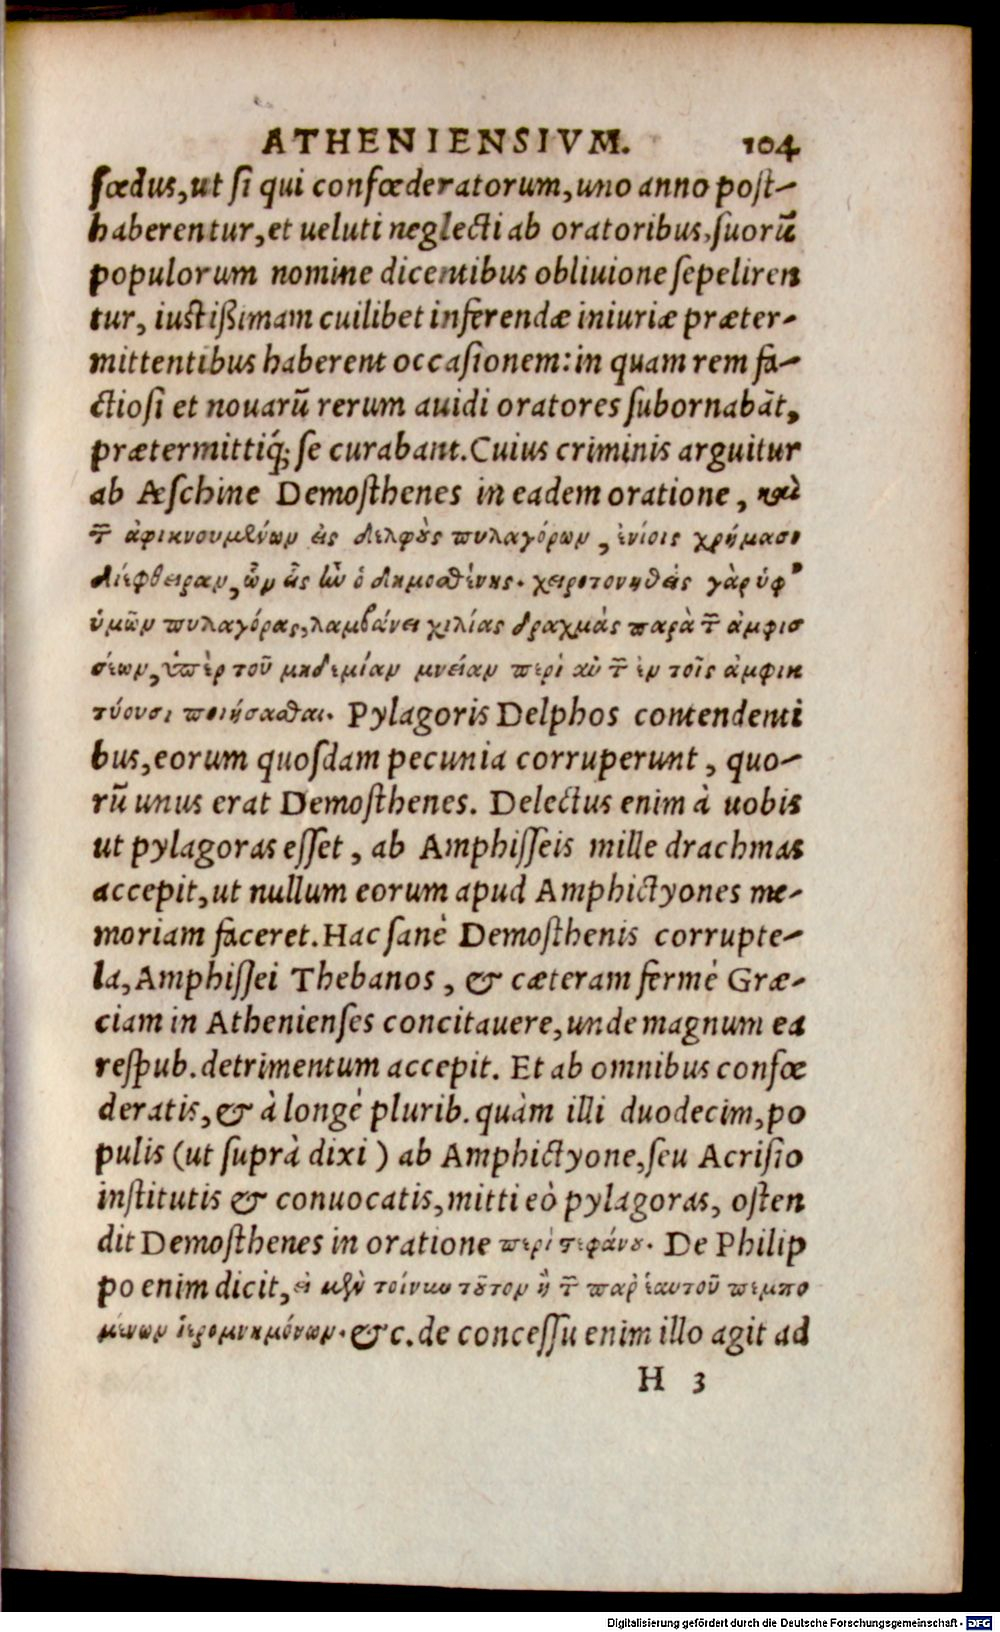 ATHENIENSIVM. 104
fœdus, ut ſi qui confœderatorum, uno anno poſt-
haberentur, et ueluti neglecti ab oratoribus, ſuorū
populorum nomine dicentibus obliuione ſepeliren
tur, iuſtißimam cuilibet inferendæ iniuriæ præter-
mittentibus haberent occaſionem: in quam rem fa-
ctioſi et nouarū rerum auidi oratores ſubornabāt,
prætermittiq́; ſe curabant. Cuius criminis arguitur
ab Æſchine Demoſthenes in eadem oratione, καὶ
τ̄ ἀφικνουμένων εἰς δελφὸς πυλαγόρων, ἐνίοις χρήμασι
διέφθειραν, ὧν εἷς ἦν ὁ δημοσθένης. χειροτονηθεὶς γὰρ ὑφ'
ὑμῶν πυλαγόρας, λαμβάνει χιλίας δραχμὰς παρὰ τ̄ ἀμφισ
σέων, ὑπὲρ τοῦ μηδεμίαν μνείαν περὶ αὐ τ̄ ἐν τοῖς ἀμφικ
τύουσι ποιήσασθαι. Pylagoris Delphos contendenti
bus, eorum quoſdam pecunia corruperunt, quo-
rū unus erat Demoſthenes. Delectus enim à uobis
ut pylagoras eſſet, ab Amphiſſeis mille drachmas
accepit, ut nullum eorum apud Amphictyones me-
moriam faceret. Hac ſanè Demoſthenis corrupte-
la, Amphiſſei Thebanos, & cæteram fermè Græ-
ciam in Athenienſes concitauere, unde magnum ea
reſpub. detrimentum accepit. Et ab omnibus confœ
deratis, & à longè plurib. quàm illi duodecim, po
pulis (ut ſuprà dixi) ab Amphictyone, ſeu Acriſio
inſtitutis & conuocatis, mitti eò pylagoras, oſten
dit Demoſthenes in oratione περὶ στεφάνου. De Philip
po enim dicit, εἰ μὲν τοίνυν τοῦτον ἢ τ̄ παρ' ἑαυτοῦ πεμπο
μένων ἱερομνημόνων. &c. de conceſſu enim illo agit ad
H 3
Digitalisierung gefördert durch die Deutsche Forschungsgemeinschaft - DFG